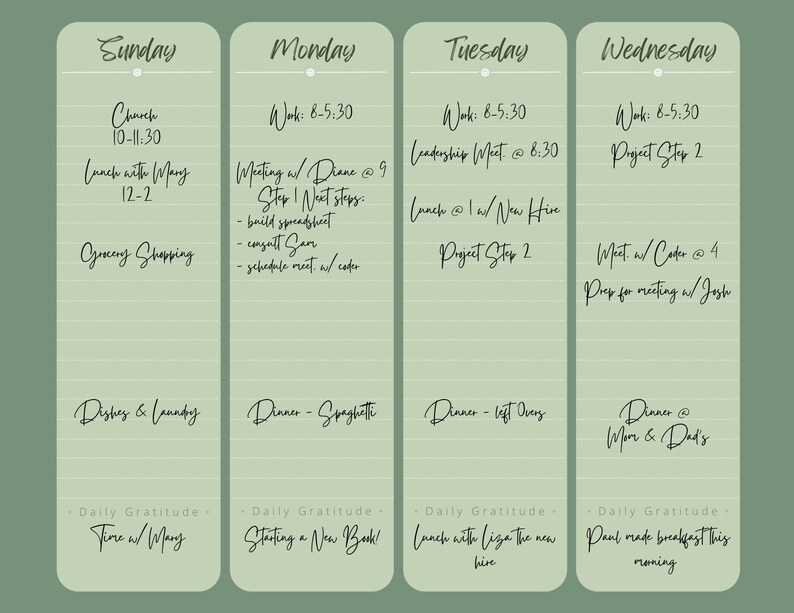 Sunday
Church
10-11:30
Lunch with Mary
12-2
Grocery Shopping
Dishes & Laundry
Daily Gratitude
Time w/ Mary
Monday
Work: 8-5:30
Meeting w/ Diane @ 9
Step 1 Next steps:
- build spreadsheet
- consult Sam
- schedule meet. w/ coder
Dinner - Spaghetti
Daily Gratitude
Starting a New Book!
Tuesday
Work: 8-5:30
Leadership Meet. @ 8:30
Lunch @ 1 w/ New Hire
Project Step 2
Dinner - left Overs
Daily Gratitude
Lunch with Liza the new
hire
Wednesday
Work: 8-5:30
Project Step 2
Meet. w/ Coder @ 4
Prep for meeting w/ Josh
Dinner @
Mom & Dad's
Daily Gratitude
Paul made breakfast this
morning